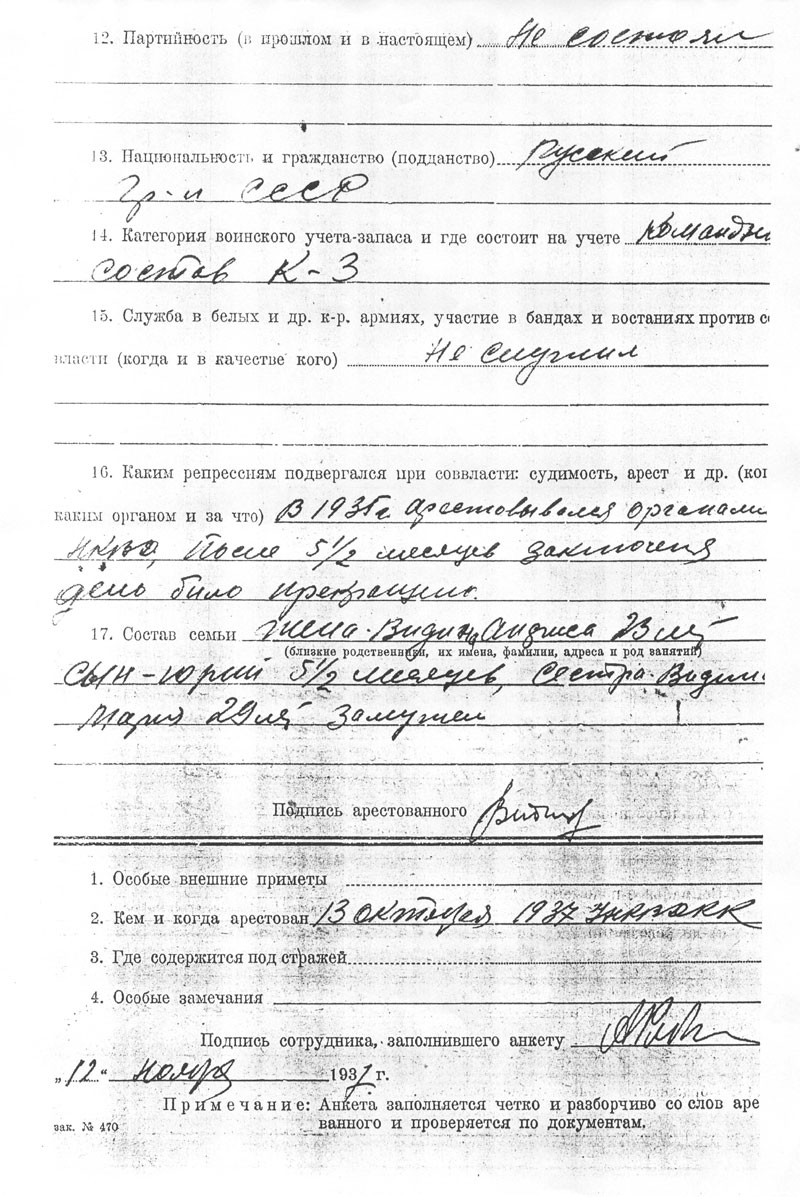 12. Партийность (в прошлом и в настоящем) Не состоял
13. Национальность и гражданство (подданство) Русский
гр-н СССР
14. Категория воинского учета-запаса и где состоит на учете Командн
состав К-3
15. Служба в белых и др. к-р. армиях, участие в бандах и востаниях против с
власти (когда и в качестве кого) Не служил
16. Каким репрессиям подвергался при соввласти: судимость, арест и др. (ког
каким органом и за что) В арестовывался органами
НКВД, После 5 1/2 месяцев
дело было
17. Состав семьи жена - 23 лет
(близкие родственники, их имена, фамилии, адреса и род занятий)
Сын - Юрий 5 1/2 месяцев, Сестра -
Мария 29 лет Замужем
Подпись арестованного
1. Особые внешние приметы
2. Кем и когда арестован 13 октября 1937 УНКВДКК
3. Где содержится под стражей
4. Особые замечания
Подпись сотрудника, заполнившего анкету
„12“ ноября 1937 г.
Примечание: Анкета заполняется четко и разборчиво со слов аре
зак. № 470 ванного и проверяется по документам.